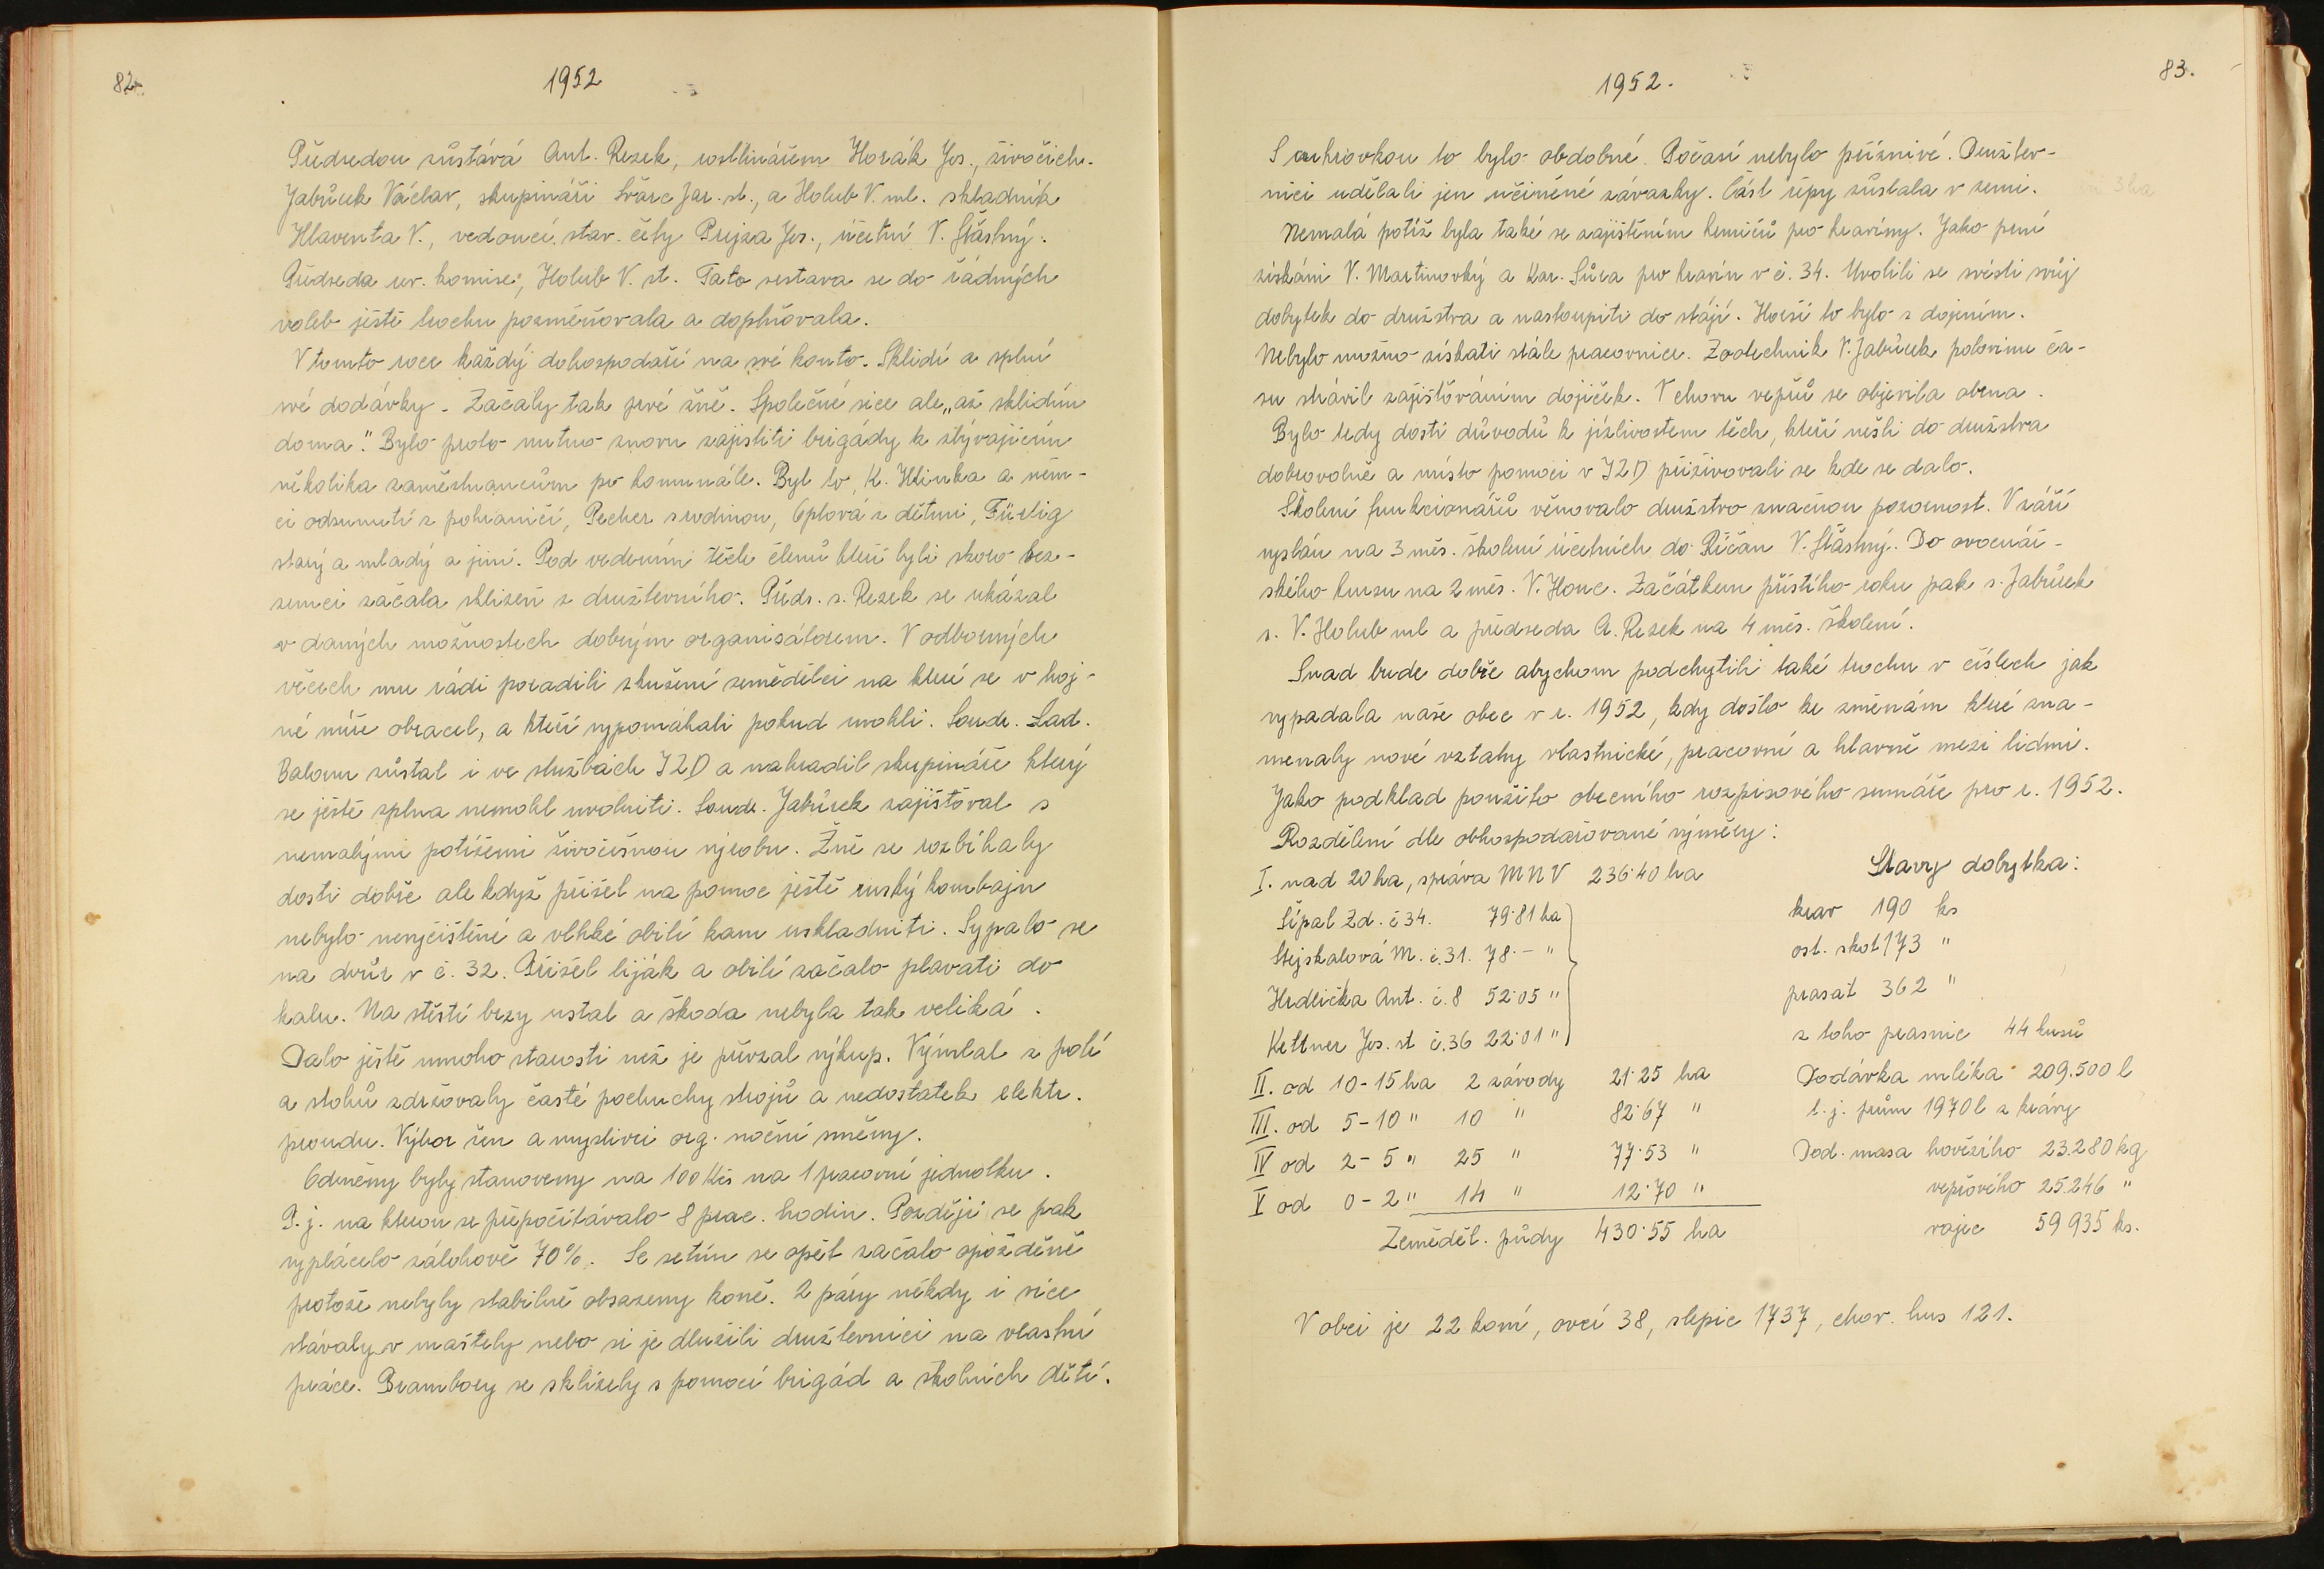 82.
1952
Předsedou zůstává Ant. Rezek, rostlinářem Horák Jos., živočich.
Jabůrek Václav, skupináři Švarc Jar. st., a Holub V. ml. skladník
Hlaventa V., vedoucí stav. čety Prejza Jos., účetní V. Šťastný.
Předseda rev. komise, Holub V. st. Tato sestava se do řádných
voleb ještě trochu pozměňovala a doplňovala.
V tomto roce každý dohospodaří na své konto. Sklidí a splní
své dodávky. Začaly tak prvé žně. Společné sice ale „až sklidím
doma." Bylo proto nutno znovu zajistiti brigády k zbývajícím
několika zaměstnancům po komunále. Byl to, K. Hlinka a něm-
ci odsunutí z pohraničí, Pecher s rodinou, Eplová s dětmi, Fürlig
starý a mladý a jiní. Pod vedením těch členů kteří byli skoro bez-
zemci začala sklizeň z družstevního. Předs. s. Rezek se ukázal
v daných možnostech dobrým organisátorem. V odborných
věcech mu rádi poradili zkušení zemědělci na které se v hoj-
né míře obracel, a kteří vypomáhali pokud mohli. Soudr. Lad.
Baloun zůstal i ve službách JZD a nahradil skupináře který
se ještě zplna nemohl uvolniti. Soudr. Jabůrek zajišťoval s
nemalými potížemi živočišnou výrobu. Žně se rozbíhaly
dosti dobře ale když přišel na pomoc ještě ruský kombajn
nebylo nevyčištěné a vlhké obilí kam uskladniti. Sypalo se
na dvůr v č. 32. Přišel liják a obilí začalo plavati do
kalu. Na štěstí brzy ustal a škoda nebyla tak veliká.
Dalo ještě mnoho starostí než je převzal výkup. Výmlat z polí
a stohů zdržovaly časté poruchy strojů a nedostatek elektr.
proudu. Výbor žen a myslivci org. noční směny.
Odměny byly stanoveny na 100 Kčs na 1 pracovní jednotku.
P. j. na kterou se přepočítávalo 8 prac. hodin. Později se pak
vyplácelo zálohově 70%. Se setím se opět začalo opožděně
protože nebyly stabilně obsazeny koně. 2 páry někdy i více
stávaly v maštely nebo si je dlužili družstevníci na vlastní
práce. Brambory se sklízely s pomocí brigád a školních dětí.
1952.
83.
S cukrovkou to bylo obdobné. Počasí nebylo příznivé. Družstev-
níci udělali jen učiněné závazky. Část řepy zůstala v zemi.
Nemalá potíž byla také se zajištěním krmičů pro kravíny. Jako prví
získáni V. Martinovký a Kar. Sůra pro kravín v č. 34. Uvolili se svésti svůj
dobytek do družstva a nastoupiti do stájí. Horší to bylo s dojením.
Nebylo možno získati stále pracovnice. Zootechnik V. Jabůrek polovinu ča-
su strávil zajišťováním dojiček. V chovu vepřů se objevila obrna.
Bylo tedy dosti důvodů k jízlivostem těch, kteří nešli do družstva
dobrovolně a místo pomoci v JZD přiživovali se kde se dalo.
Školení funkcionářů věnovalo družstvo značnou pozornost. V září
vyslán na 3 měs. školení účetních do Říčan V. Šťastný. Do ovocnář-
ského kursu na 2 měs. V. Honc. Začátkem příštího roku pak s. Jabůrek
s. V. Holub ml a předseda A. Rezek na 4 měs. školení.
Snad bude dobře abychom podchytili také trochu v číslech jak
vypadala naše obec v r. 1952, kdy došlo ke změnám které zna-
menaly nové vztahy vlastnické, pracovní a hlavně mezi lidmi.
Jako podklad použito obecního rozpisového sumáře pro r. 1952.
Rozdělení dle obhospodařované výměry:
I. nad 20 ha, správa MNV 236·40 ha
Stavy dobytka:
Šípal Zd. č 34. 79·81 ha
krav 190 ks
Stejskalová M. č. 31. 78·- "
ost. skot 173 "
Hrdlička Ant. č. 8 52·05 "
prasat 362 "
Kettner Jos. st č. 36 22·01 "
z toho prasnic 44 kusů
II. od 10-15 ha 2 závody 21·25 ha
Dodávka mléka 209.500 l
III. od 5-10 " 10 " 82·67 "
t. j. prům 1970 l z krávy
IV od 2-5 " 25 " 77·53 "
Dod. masa hovězího 23.280 kg
V od 0-2 " 14 " 12·70 "
vepřového 25.246 "
Zeměděl. půdy 430·55 ha
vajec 59 935 ks.
V obci je 22 koní, ovcí 38, slepic 1737, chov. hus 121.